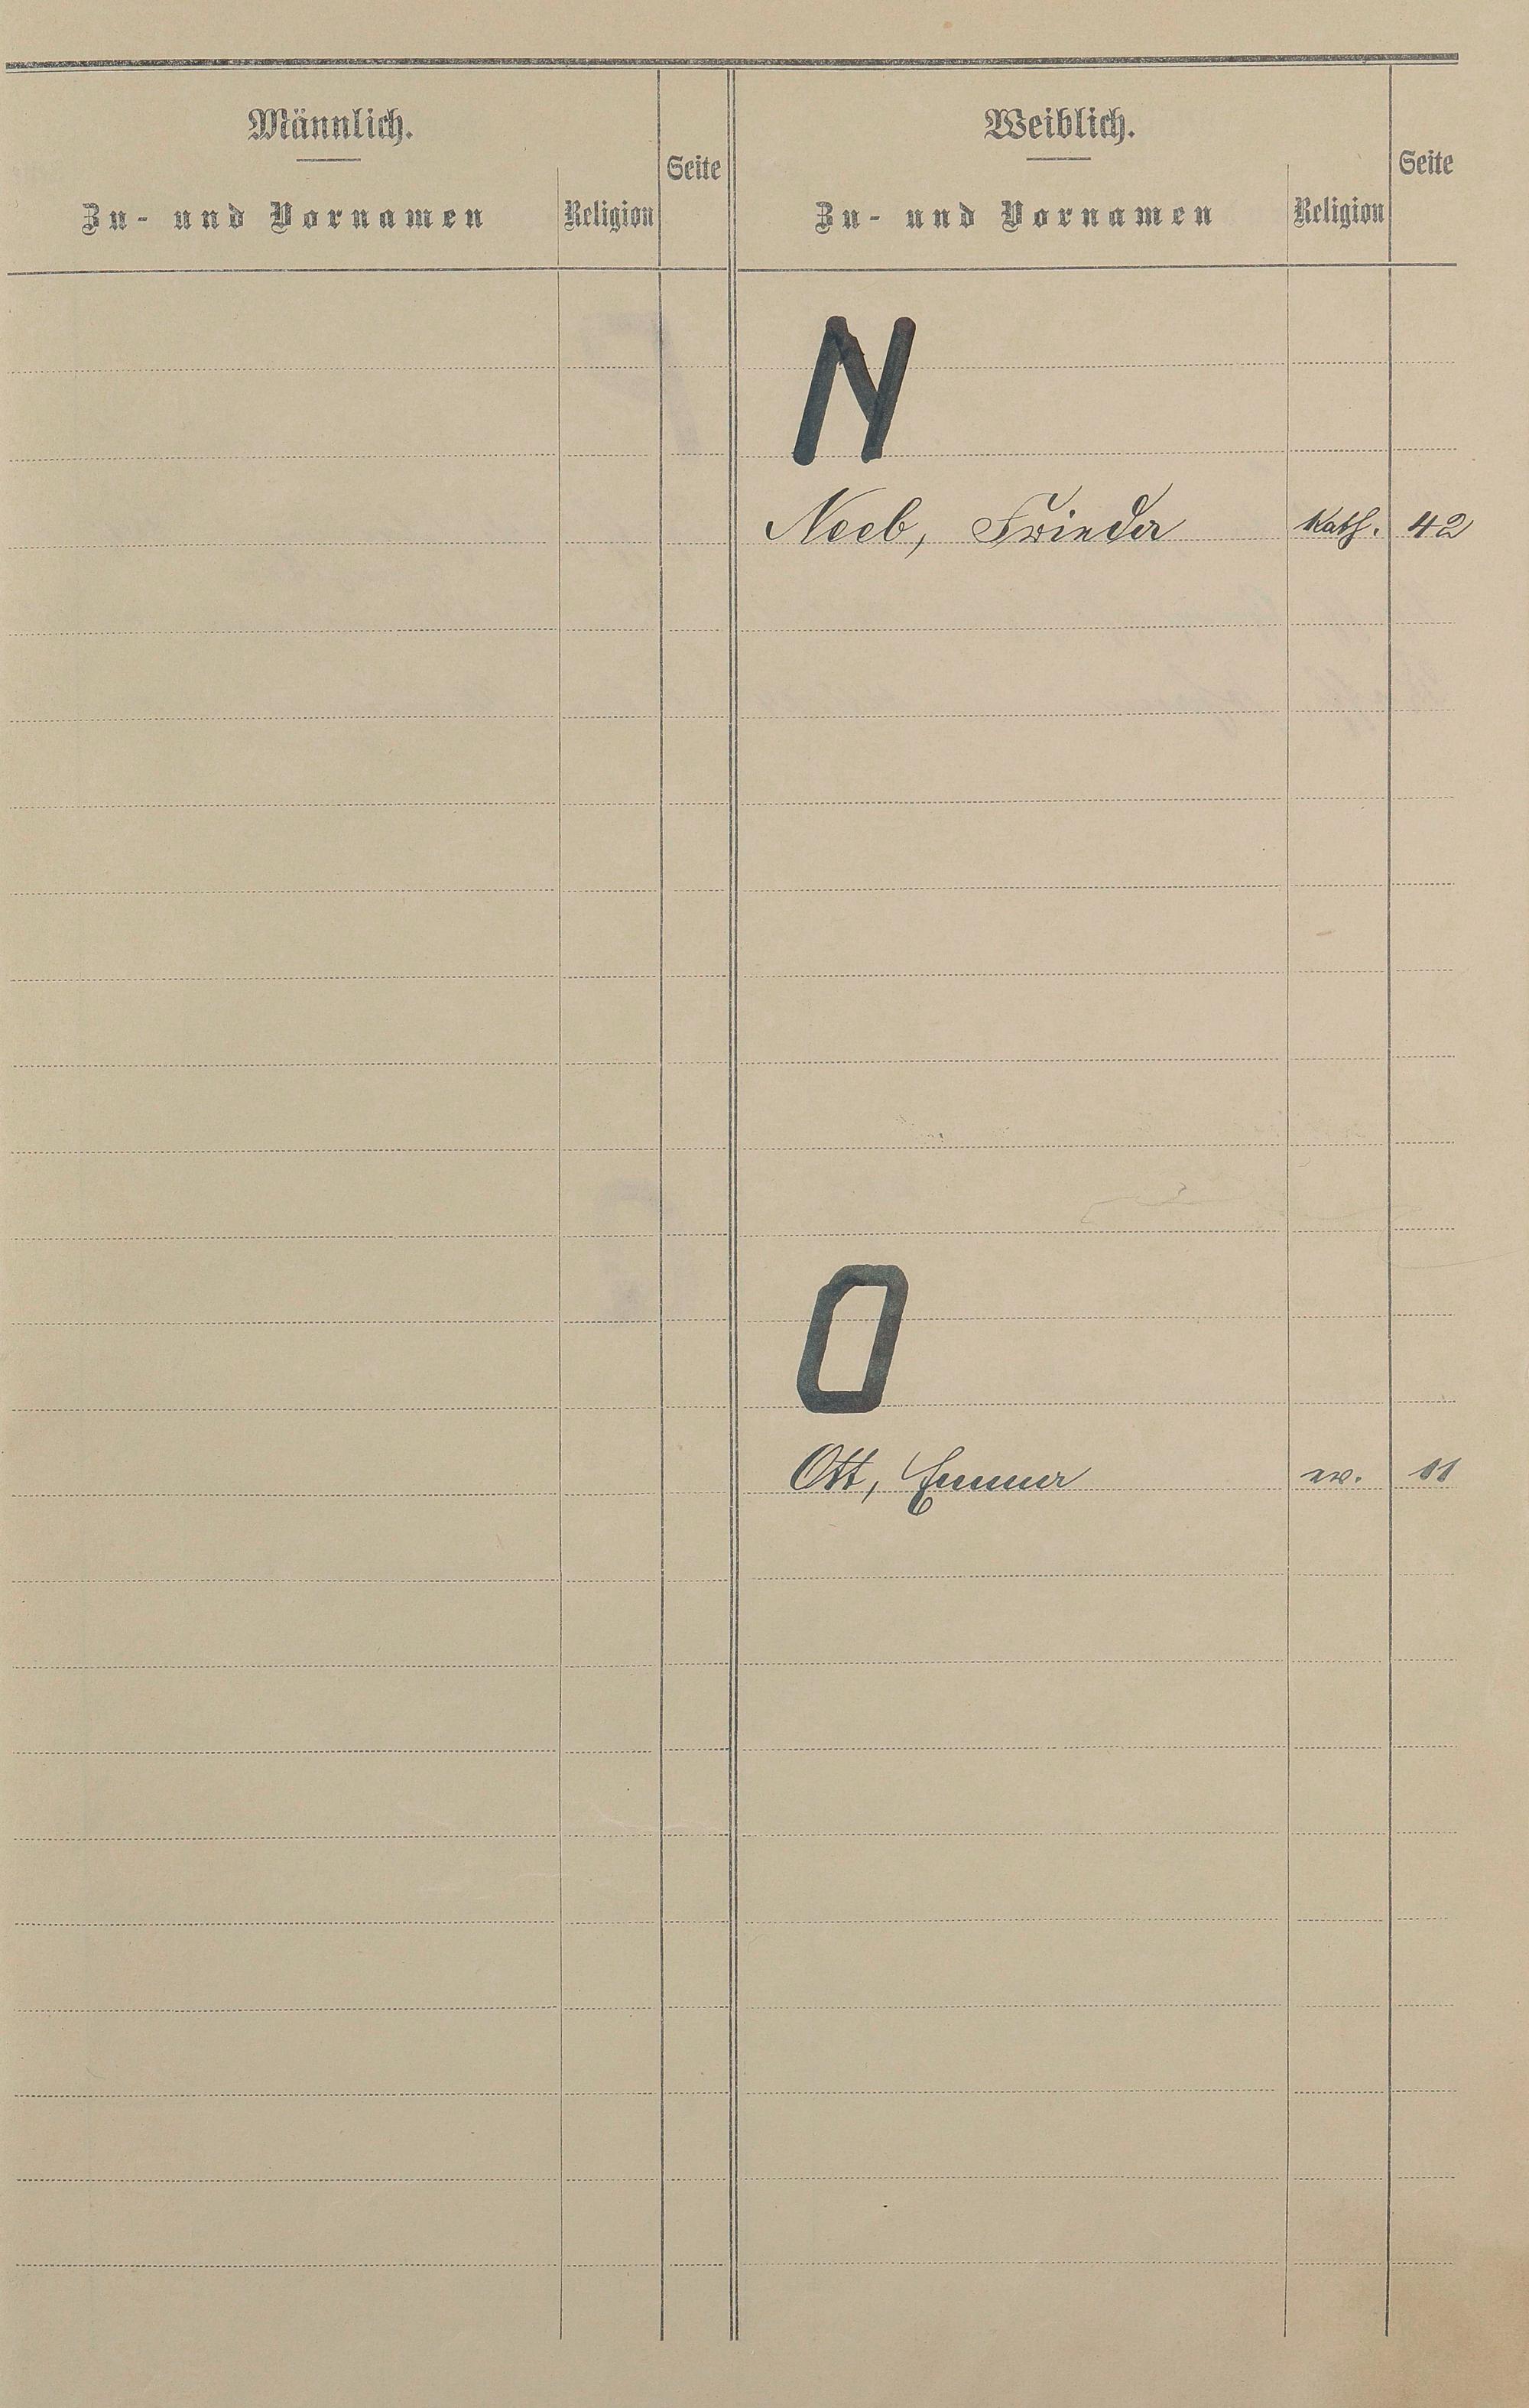 Männlich.
Zu- und Vornamen
Religion
Seite
Weiblich.
Zu- und Vornamen
Religion
Seite
N
Neeb, Frieda kath. 42
O
Ott, Emma ev. 11